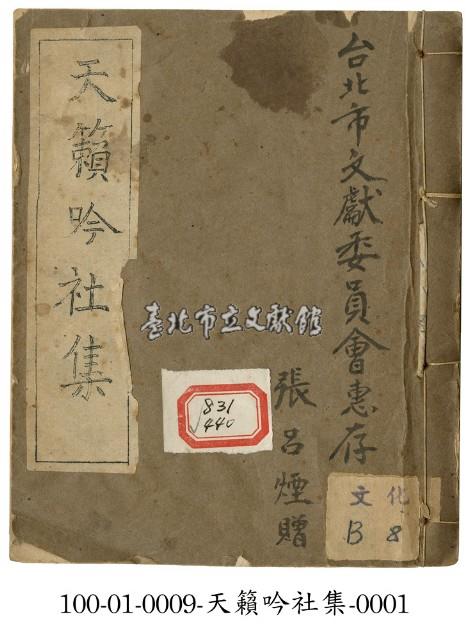 台北市文獻委員會惠存
張呂煙贈
天籟吟社集
臺北市立文獻館
831
440
文化
B 8
100-01-0009-天籟吟社集-0001